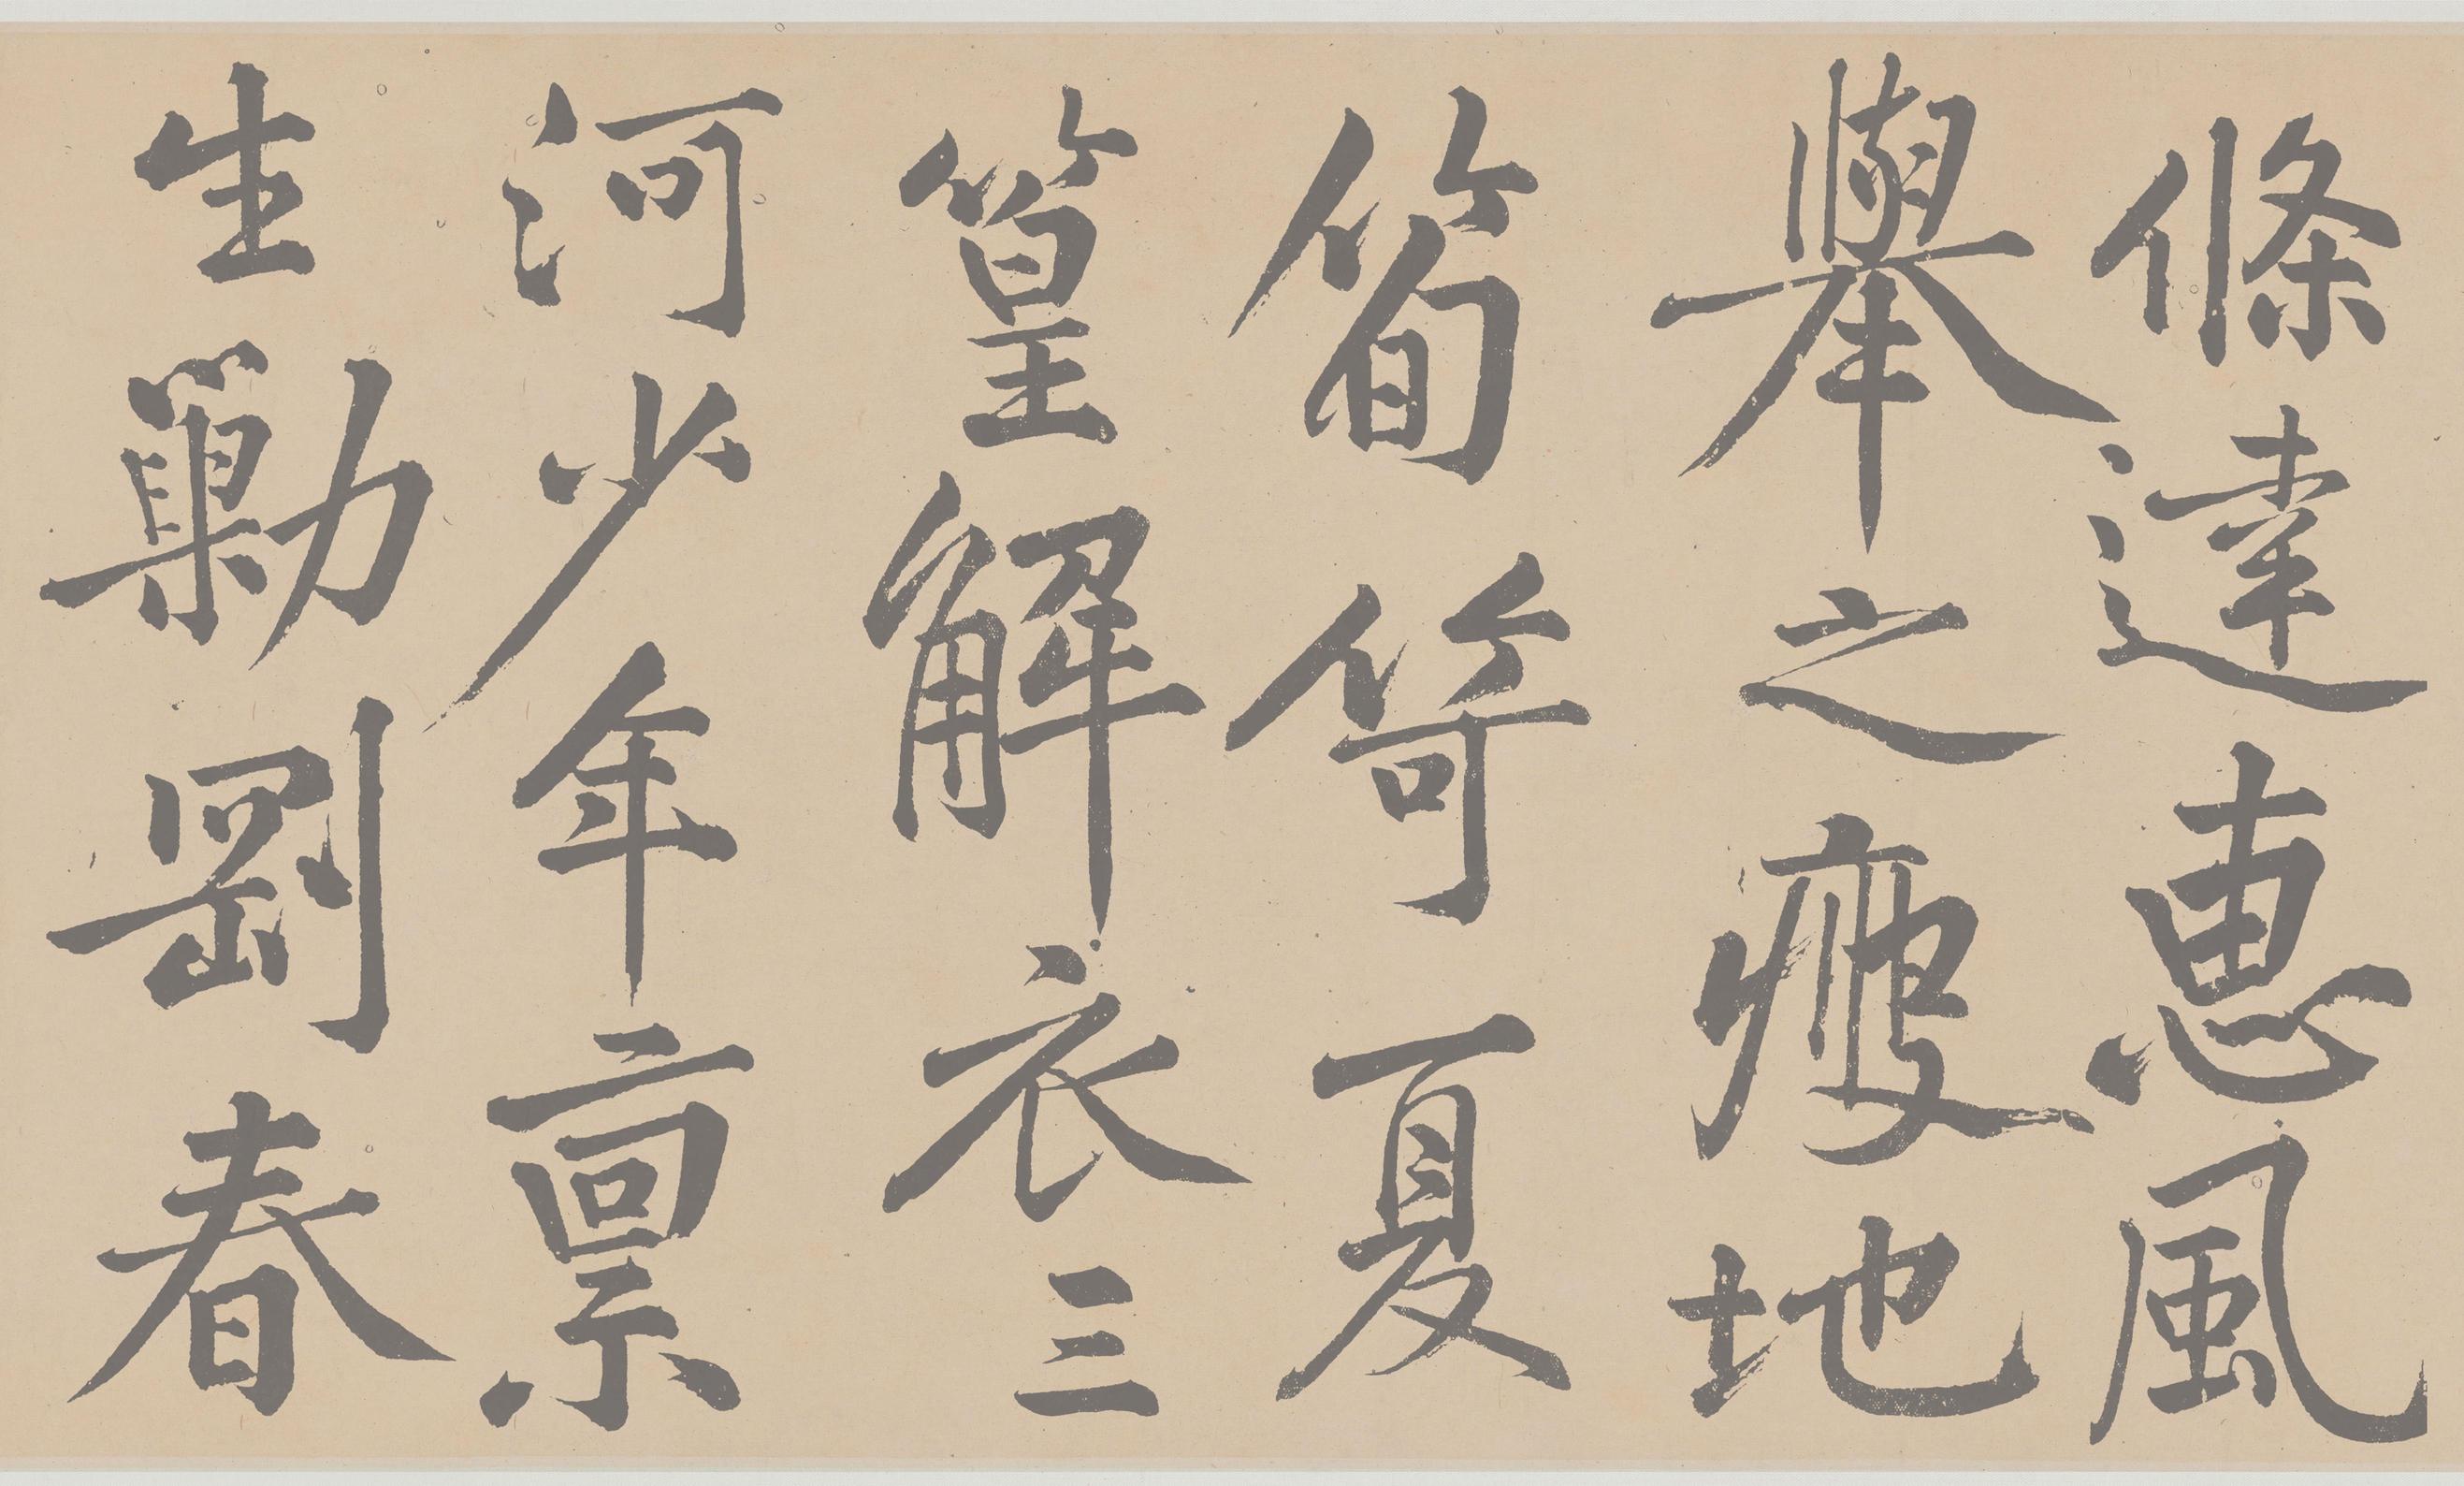 條達惠風
舉之瘦地
筍笴夏
篁解衣三
河少年稟
生勦剛春